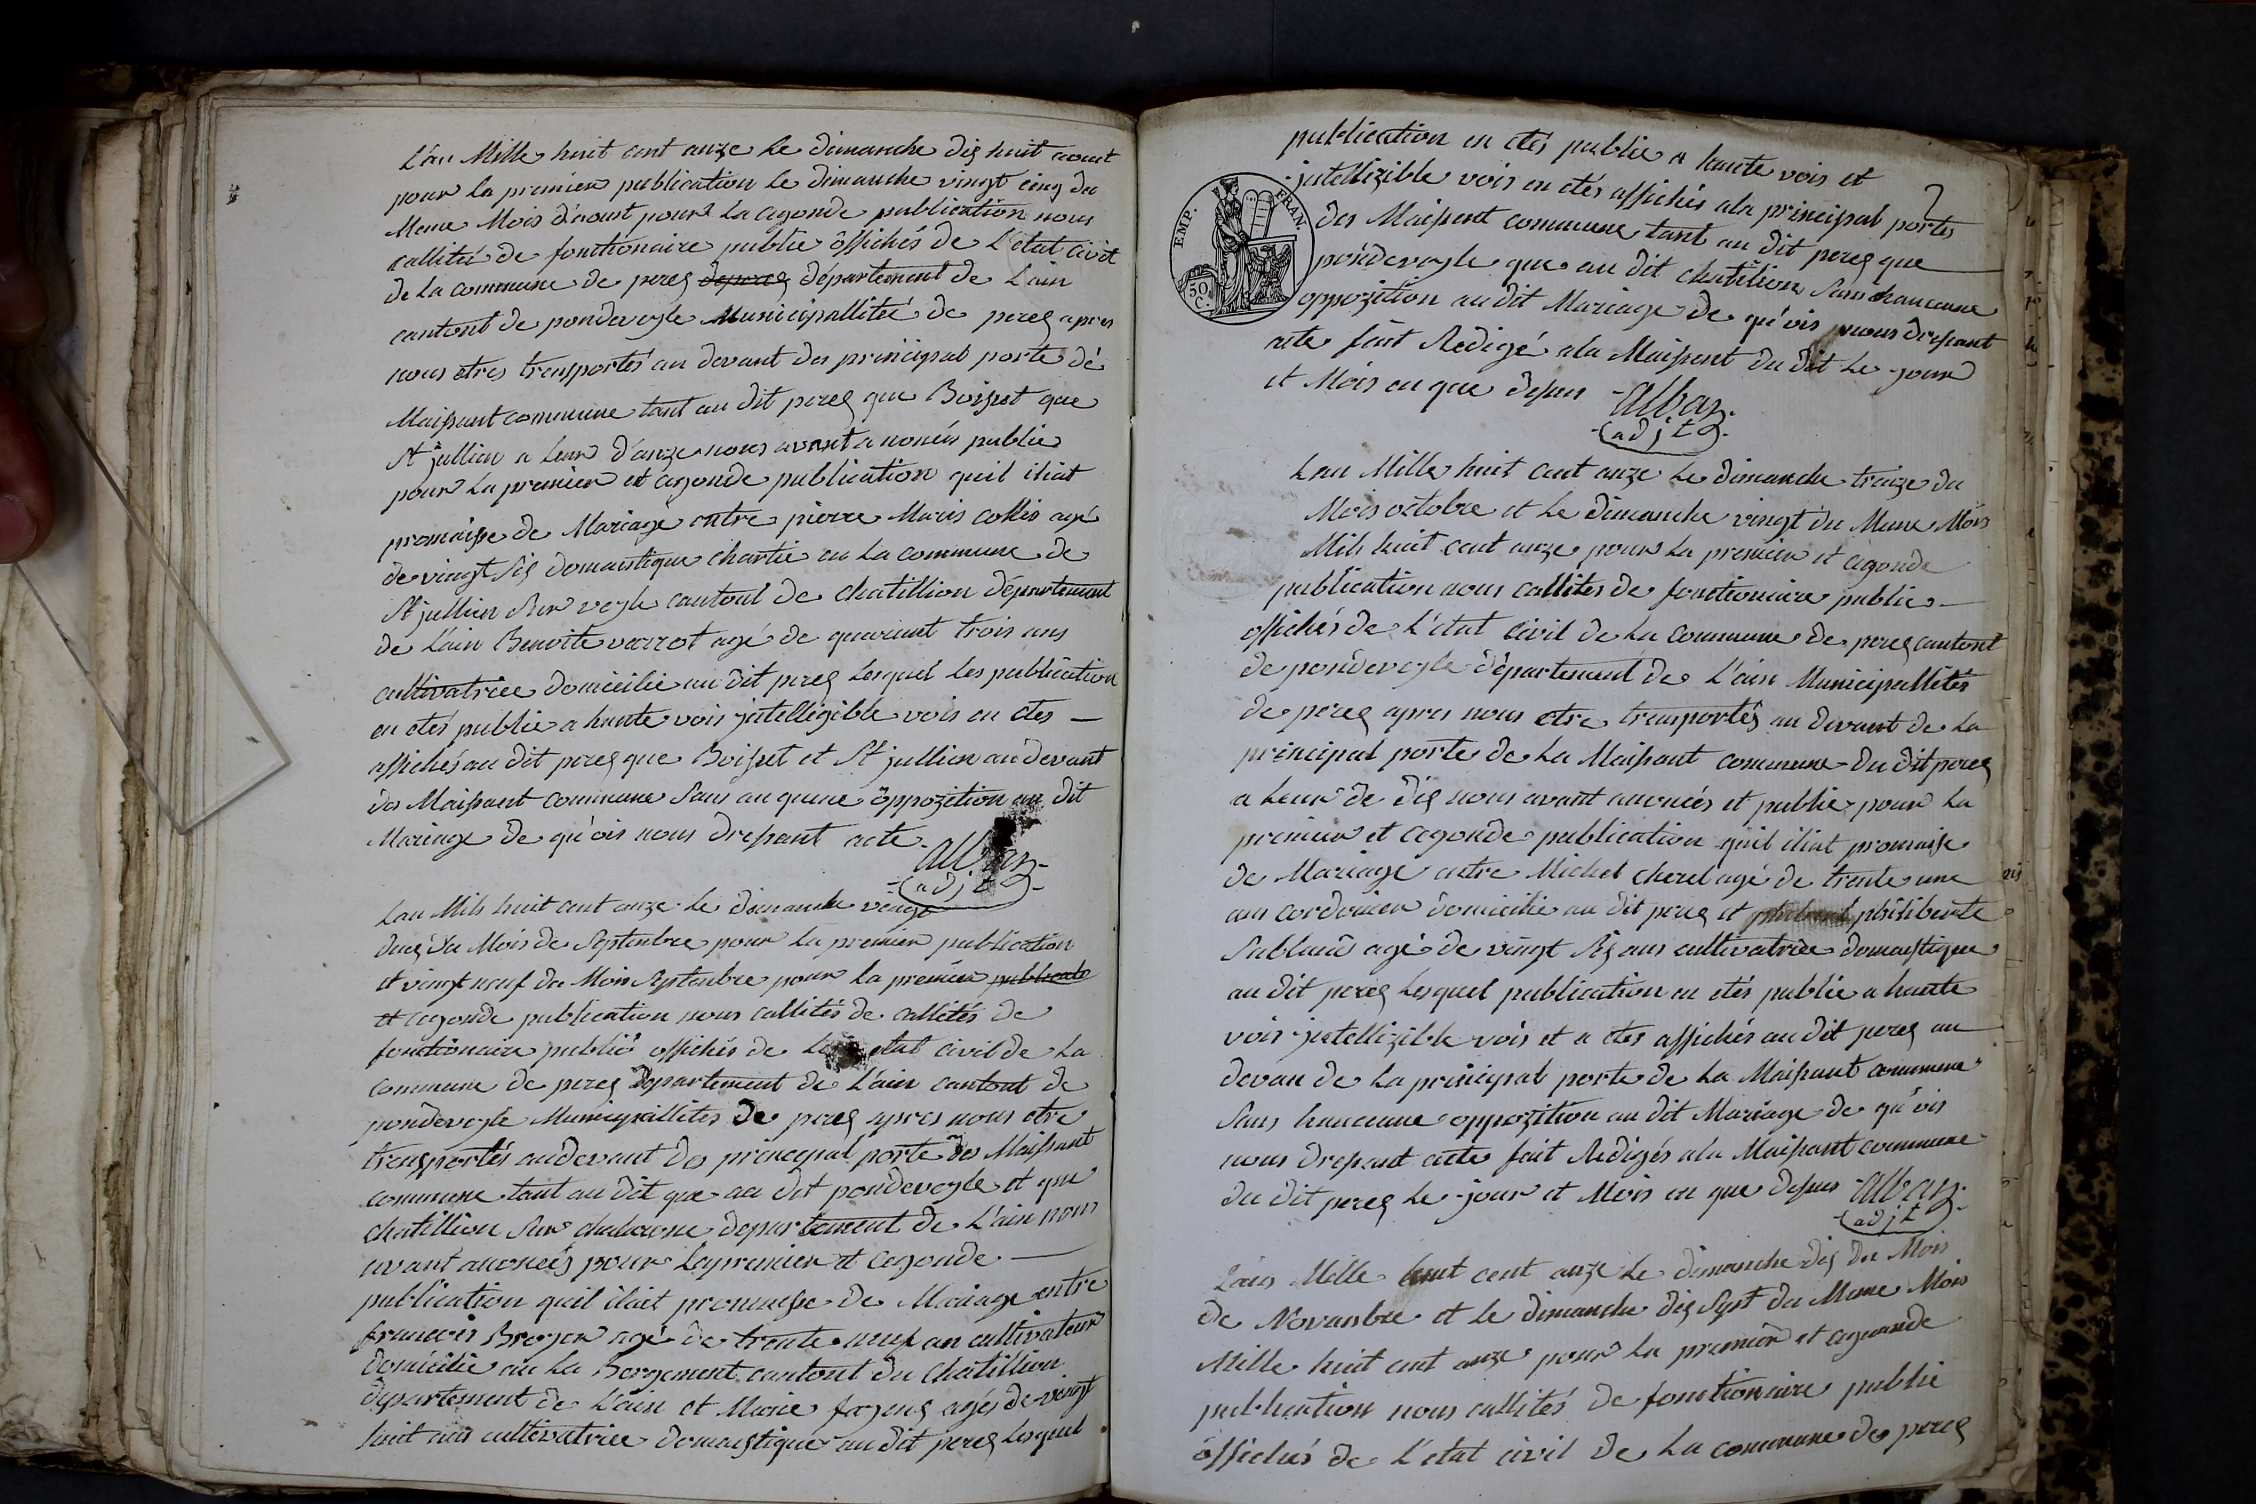 L'an Mille huit cent onze Le dimanche dis huit aout
pour La premier publication Le dimanche vingt cinq du
Meme Mois d'aout pour La cegonde publication nous
callités de fonctionaire publie offichés de L'etat Civil
de La commune de perez deperez département de L'ain
cantont de pondevayle Municipallitée de perez apres
nous etres trensportés au devant des principal porte dé
Maissant commune tant au dit perez que Boisset que
St jullien a Leur d'onze nous avant anonées publie
pour La premier et cegonde publication quil iliat
promaisse de Mariage entre pierre Maris collis agé
de vingt sis domaistique chartie en La commune de
St jullien Sur veyle cantont de chatillion département
de L'ain Benoite varrot agé de quarant trois ans
cultivatrice domicilie au dit perez Lesquel Les publication
en etés publie a haute vois jntelligible vois en etes —
affichés au dit perez que Boisset et St jullien au devant
des Maissant commune Sans auquene oppozition au dit
Mariage de qu'ois nous dressant acte.
alban
(adjt)
Lan Mils huit cent onze Le dimanche vengt
deuz du Mois de Septenbre pour La premier publication
et vingt neuf du Mois Septenbre pour La premier publicati
et cegonde publication nous callités de callités de
fonctionaire publié offichés de etat civil de La
commune de perez Département de L'ain cantont de
pondevayle Municipallites De perez apres nous etre
trensportés au devant des principal porte des Maissant
commune tant au Dit que au dit pondevayle et que
chatillion Sur chalarone departement de L'ain nous
avant anoneés pour La premier et cegonde —
publication quil iliat promaisse de Mariage entre
francois Broyer agé de trente neuf an cultivateur
domicilie au La Bergement cantont du Chatillion
département de L'ain et Marie fayeus agés de vingt
huit ans cultivatrice domaistique au dit perez Lesquel
publication en etés publie a haute vois et
jntelligible vois en etés affichés ala principal portes
des Maissent commune tant au dit perez que
pondevayle que au dit chatilion Sans haucune
oppozition au dit Mariage De qu'ois nous dressant
acte fait Redigé ala Maissent du Dit Le jour
et Mois en que desus alban
(adjt)
EMP. FRAN.
50 C.
Lan Mille huit cent onze Le dimanche treize du
Mois octobre et Le dimanche vingt du Meme Mois
Mils huit cent onze pour La premier et cegonde
publication nous callites de fonctionaire publie —
offichés de L'etat civil de La commune de perez cantont
de pondevayle département de L'ain Municipallités
de perez apres nous etre trensportés au devant de La
principal porte de La Maissant commune du dit perez
a Leur de dis nous avant anoncés et publie pour La
premier et cegonde publication quil iliat promaise
de Mariage entre Michel cherel agé de trente une
ans cordonier domicilie au dit perez et philiberte
Sablain agé de vingt sis ans cultivatrice domaistique
au dit perez Lesquel publication en etés publie a haute
vois jntelligible vois et a etes affichés au dit perez au
devan de La principal porte de La Maissant commune
Sans haucune oppozition au dit Mariage de qu'ois
nous dressant acte fait Redigés ala Maissant commune
du dit perez Le jour et Mois en que dessus alban
(adjt)
Lans Mille huit cent onze Le dimanche dis du Mois
de Novanbre et Le dimanche dis Sept du Meme Mois
Mille huit cent onze pour La premier et ceguonde
publication nous callités de fonctionaire publie
offichés de L'etat civil de La commune de perez